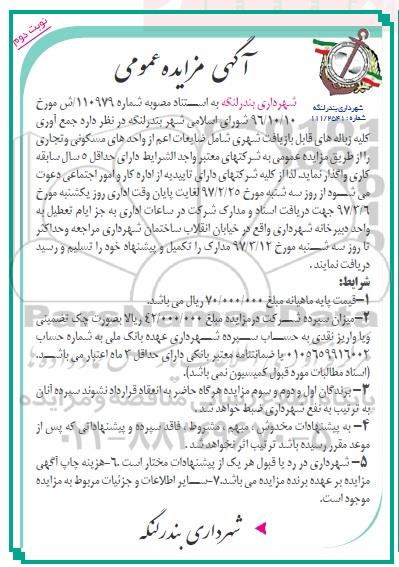 نوبت دوم
آگهی مزایده عمومی
شهرداری بندرلنگه
شماره: ۱۱۱/۲۵۴۱
شهرداری بندرلنگه به استناد مصوبه شماره ۱۱۰۹۷۹/ش مورخ
۹۶/۱۰/۱۰ شورای اسلامی شهر بندرلنگه در نظر دارد جمع آوری
کلیه زباله های قابل بازیافت شهری شامل ضایعات اعم از واحد های مسکونی وتجاری
را از طریق مزایده عمومی به شرکتهای معتبر واجد الشرایط دارای حداقل ۵ سال سابقه
کاری واگذار نماید. لذا از کلیه شرکتهای دارای تاییدیه از اداره کار و امور اجتماعی دعوت
می شود از روز سه شنبه مورخ ۹۷/۲/۲۵ لغایت پایان وقت اداری روز یکشنبه مورخ
۹۷/۳/۶ جهت دریافت اسناد و مدارک شرکت در ساعات اداری به جز ایام تعطیل به
واحد دبیرخانه شهرداری واقع در خیابان انقلاب ساختمان شهرداری مراجعه وحداکثر
تا روز سه شنبه مورخ ۹۷/۳/۱۲ مدارک را تکمیل و پیشنهاد خود را تسلیم و رسید
دریافت نمایند.
شرایط:
۱-قیمت پایه ماهیانه مبلغ ۷۰/۰۰۰/۰۰۰ ریال می باشد.
۲-میزان سپرده شرکت درمزایده مبلغ ۴۲/۰۰۰/۰۰۰ ریالا بصورت چک تضمینی
ویا واریز نقدی به حساب سپرده شهرداری عهده بانک ملی به شماره حساب
۰۱۰۵۶۰۹۹۱۶۰۰۲ یا ضمانتنامه معتبر بانکی دارای حداقل ۳ ماه اعتبار می باشد.
(اسناد مطالبات مورد قبول کمیسیون نمی باشد).
۳- برندگان اول و دوم و سوم مزایده هرگاه حاضر به انعقاد قرارداد نشوند سپرده آنان
به ترتیب به نفع شهرداری ضبط خواهد شد.
۴- به پیشنهادات مخدوش، مبهم، مشروط، فاقد سپرده و پیشنهاداتی که پس از
موعد مقرر رسیده باشد ترتیب اثر نخواهد شد.
۵- شهرداری در رد یا قبول هر یک از پیشنهادات مختار است.۶-هزینه چاپ آگهی
مزایده بر عهده برنده مزایده می باشد.۷-سایر اطلاعات و جزئیات مربوط به مزایده
موجود است.
شهرداری بندرلنگه